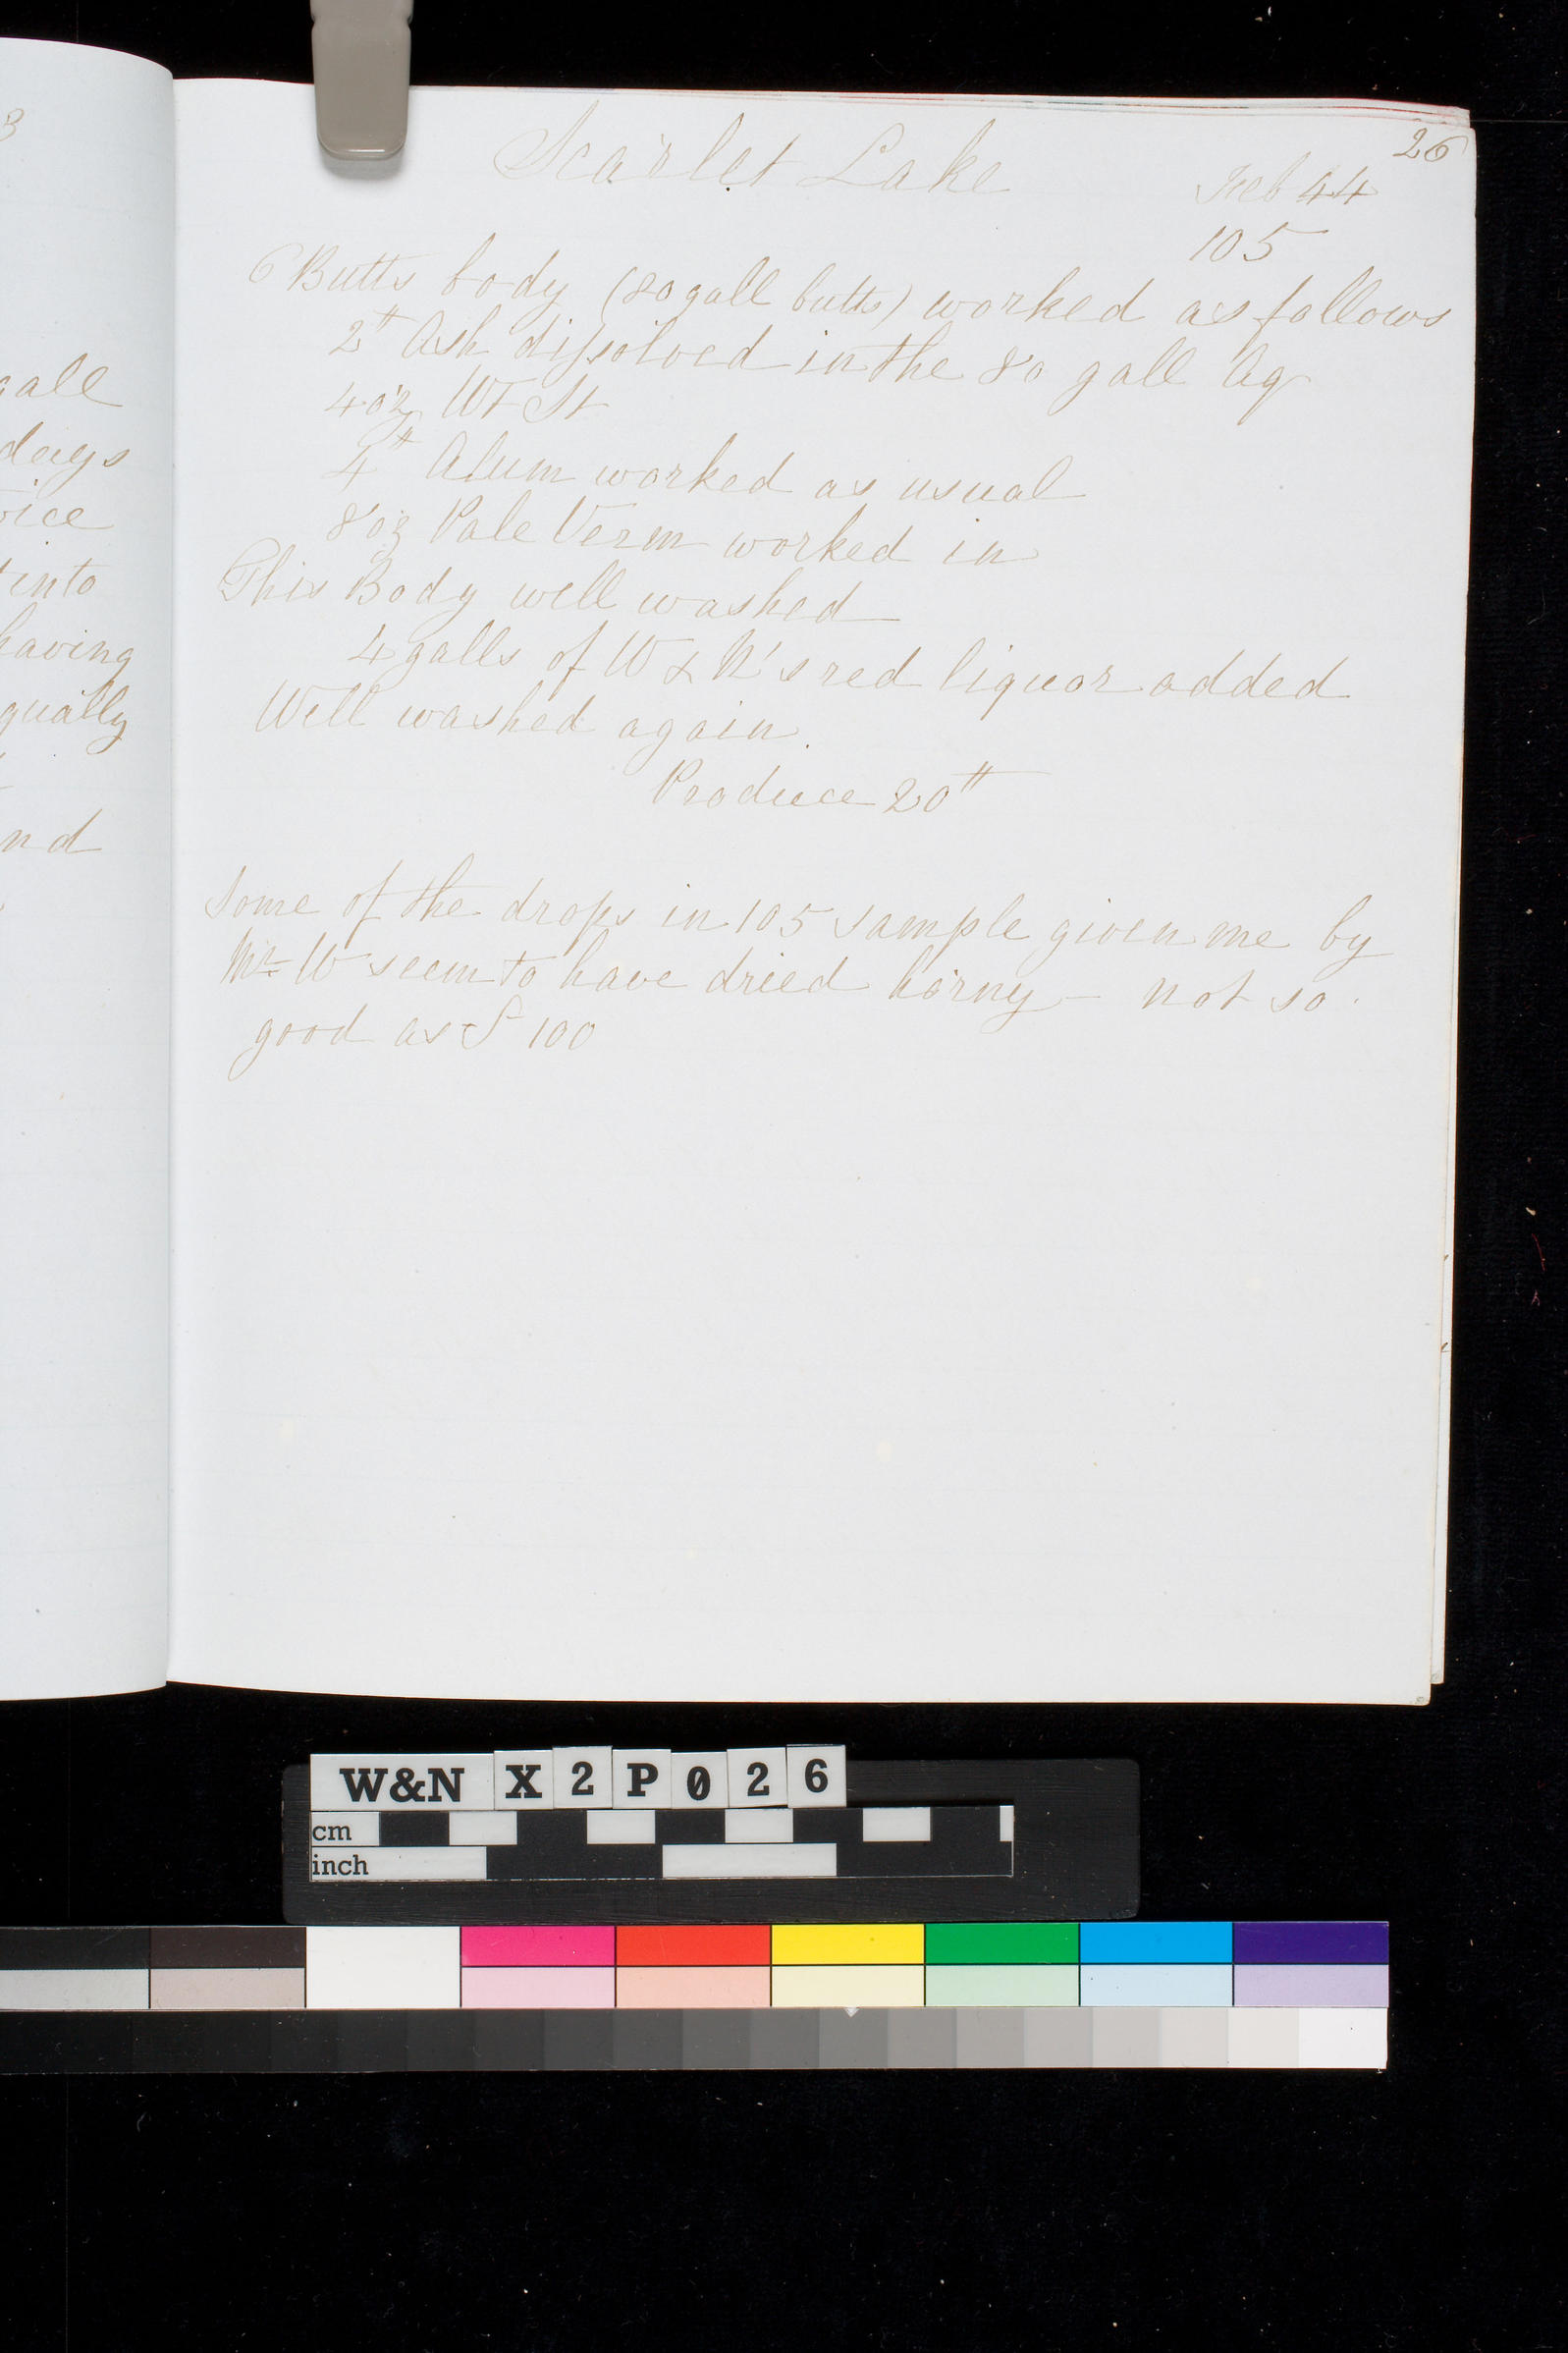 3
gall
days
into
having
qually
nd
26
Scarlet Lake
Feb 44
105
6 Butts body (80 gall butts) worked as follows
2 ℔ Ash dissolved in the 80 gall Aq
4 oz Wt St
4 ℔ Alum worked as usual
8 oz Pale Verm worked in
This Body well washed
4 galls of W & N's red liquor added
Well washed again.
Produce 20 ℔
Some of the drops in 105 sample given me by
Mr W seem to have dried horny – not so
good as S 100
W&N X2P026
cm
inch